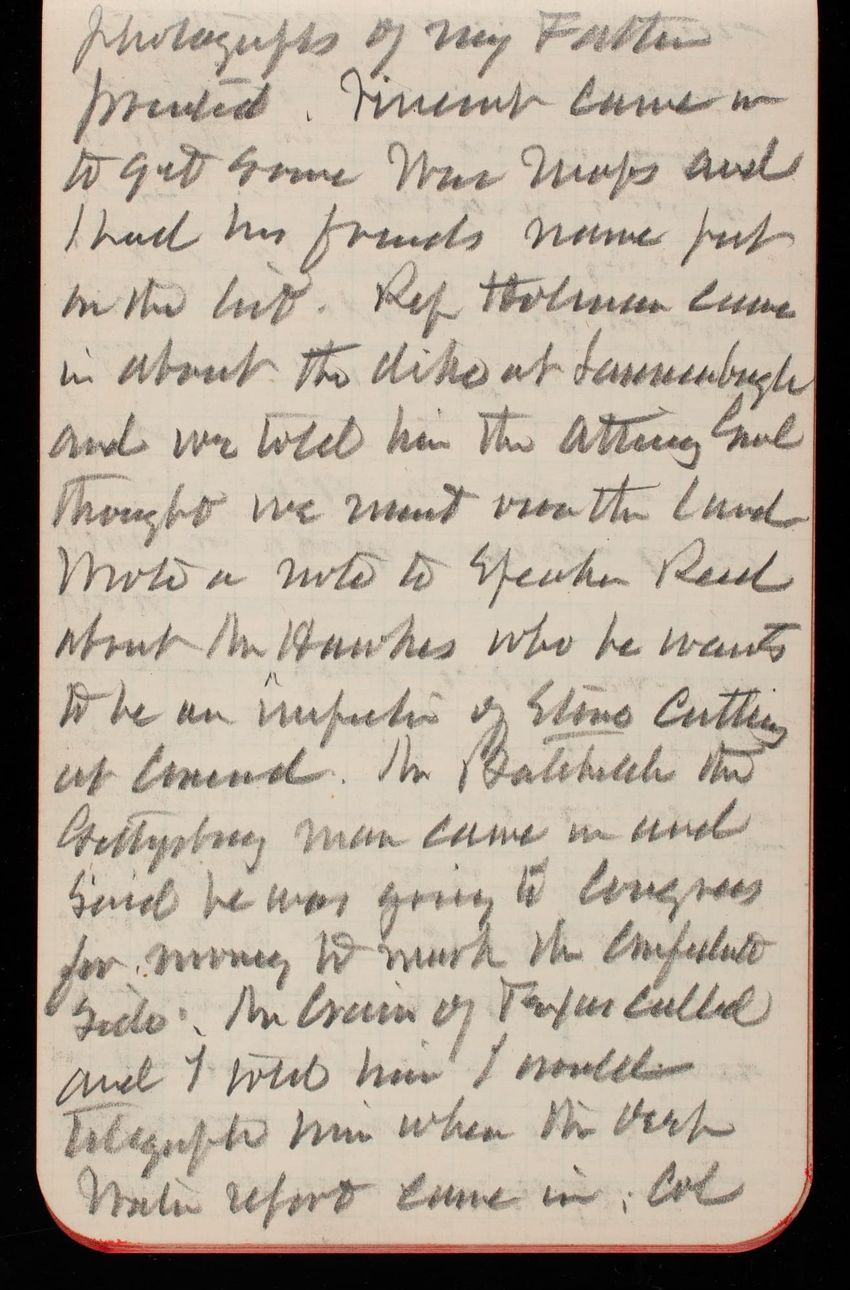 photographs of my Father
printed. Vincent came in
to get some War Maps and
I had his friends name put
on the list. Rep Holman came
in about the dike at Lawrenceburgh
and we told him the Attiny Genl
thought we must own the land
Wrote a note to Speaker Reed
about Mr Hawkes who he wants
to be an inspector of Stone Cutting
at Concord. Mr Batchelder the
Gettysburg man came in and
said he was going to Congress
for money to mark the Confederate
side. Mr Crain of Texas called
and I told him I would
telegraph him when the deep
Water report came in. Col